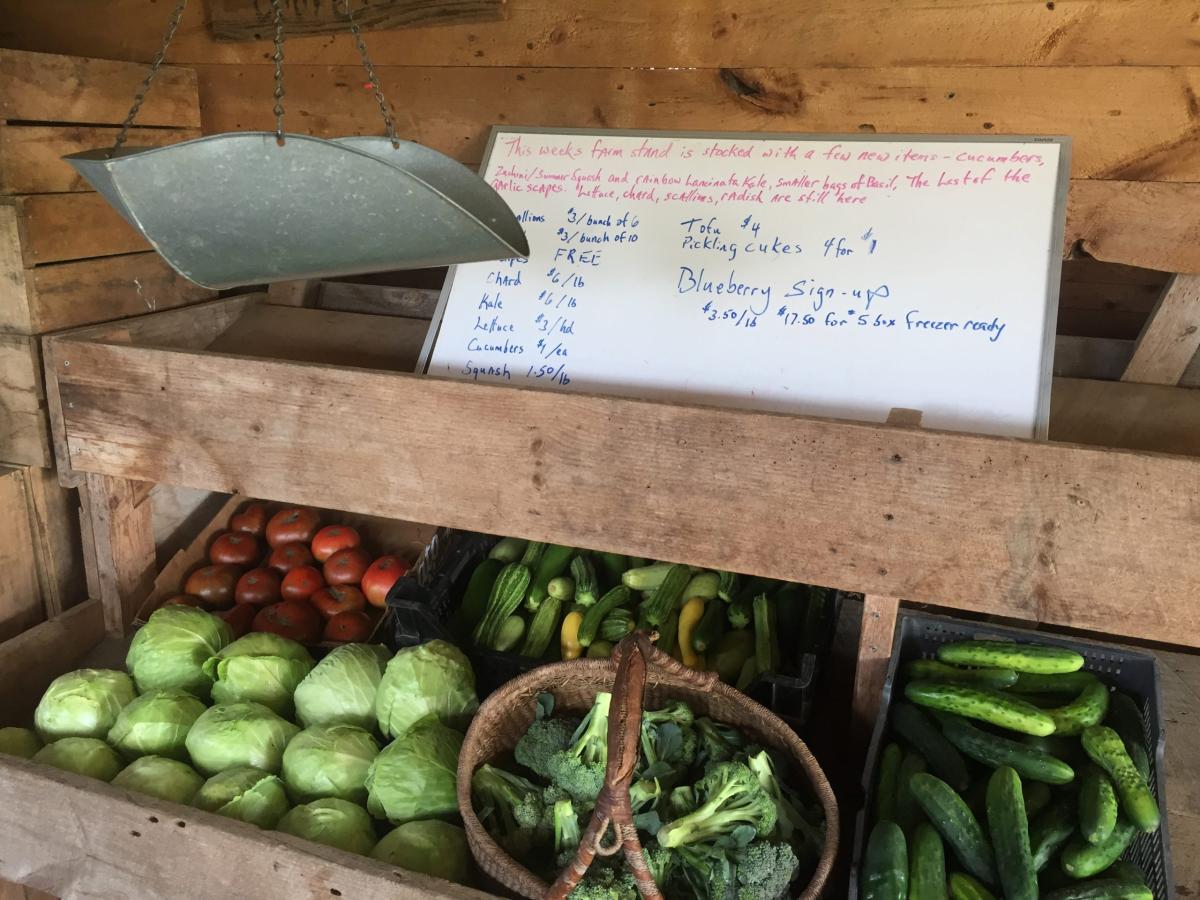 This weeks farm stand is stocked with a few new items - cucumbers,
Zuchini/Summer Squash and rainbow Lancinata Kale, smaller bags of Basil, The last of the
garlic scapes. Lettuce, chard, scallions, radish are still here
allions $3/bunch of 6
$3/bunch of 10
apes FREE
Chard $6/lb
Kale $6/lb
Lettuce $3/hd
Cucumbers $1/ea
Squash 1.50/lb
Tofu $4
Pickling cukes 4 for $1
Blueberry Sign-up
$3.50/lb $17.50 for 5 box freezer ready